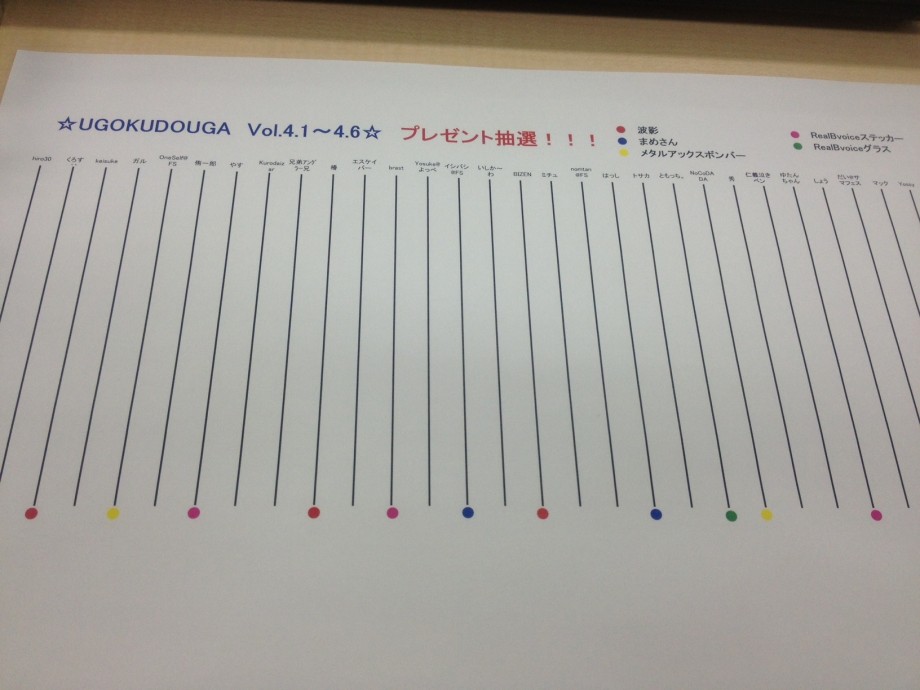 ☆UGOKUDOUGA Vol.4.1～4.6☆ プレゼント抽選！！！
波影
まめさん
メタルアックスボンバー
RealBvoiceステッカー
RealBvoiceグラス
hiro30
くろす
keisuke
ガル
OneSelf@
FS
侑一郎
やす
Kurodai
兄弟アンド
ラー兄
椿
エスケイ
パー
brest
Yosuke@
よっぺ
イシバシ
@FS
いしかー
わ
BIZEN
ミチュ
nontan
@FS
はっし
トサカ
ともっち。
NoCoDA
DA
秀
仁義泣き
ペン
ゆたん
ちゃん
しょう
だい@サ
マフェス
マック